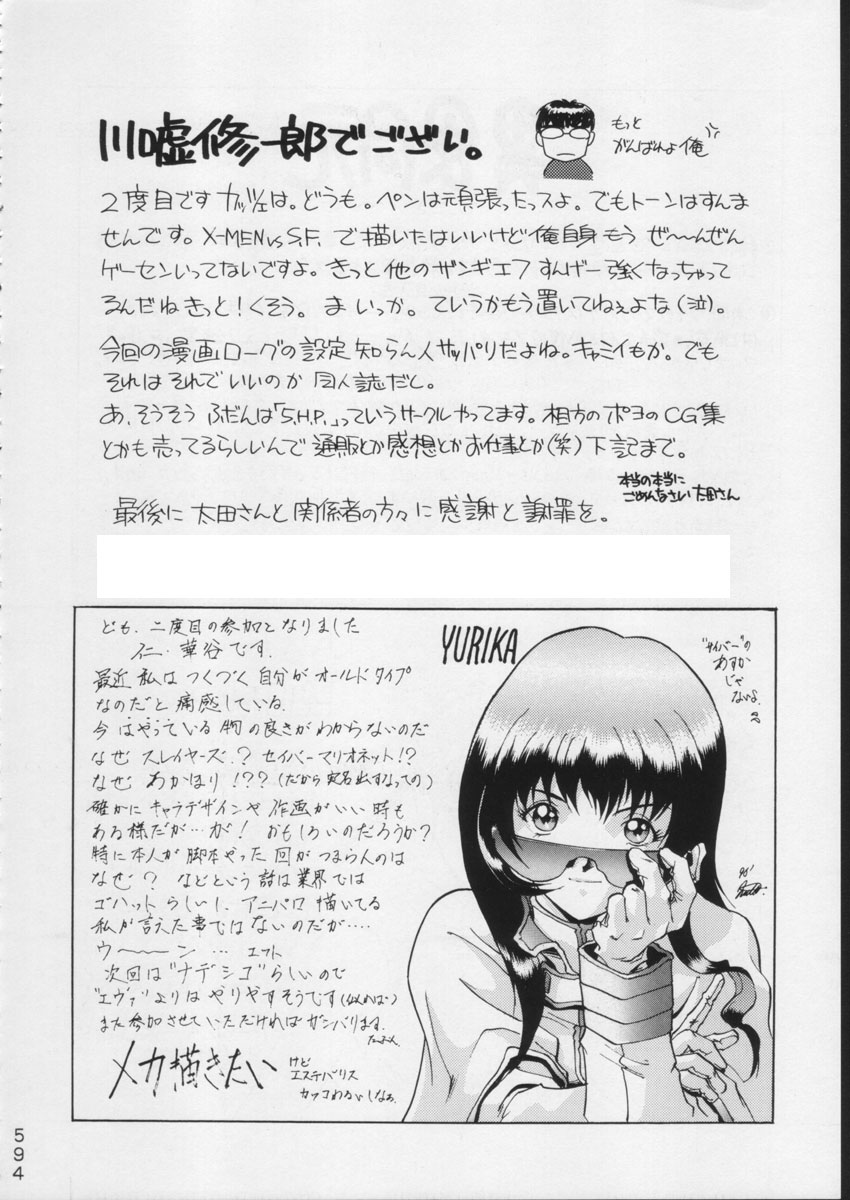 川嘘修一郎でござい。
もっと
がんばれよ俺
2度目です ガッツェは。どうも。ペンは頑張ったっスよ。でもトーンはすんま
せんです。X-MEN vs S.F. で描いたはいいけど俺自身もう ぜ〜〜んぜん
ゲーセンいってないですよ。きっと他のザンギエフ すんげー強くなっちゃって
るんだねきっと!くそう。ま いっか。ていうかもう置いてねぇよな(泣)。
今回の漫画ローグの設定知らん人サッパリだよね。キャミイもか。でも
それはそれでいいのか 同人誌だと。
あ、そうそう ふだんは「S.H.P.」っていうサークルやってます。相方のポヨのCG集
とかも売ってるらしいんで 通販とか感想とかお仕事とか(笑)下記まで。
本当の本当に
ごめんなさい太田さん
最後に 太田さんと関係者の方々に感謝と謝罪を。
ども、二度目の参加となりました
仁・華谷です.
最近 私は つくづく 自分が オールドタイプ
なのだと痛感している.
今 はやっている物の良さがわからないのだ
なぜ スレイヤーズ.? セイバーマリオネット!?
なぜ あかほり!??(だから実名出すなっての)
確かに キャラデザインや 作画がいい時も
ある様だが…が! おもしろいのだろうか?
特に本人が脚本やった回がつまらんのは
なぜ? などという話は業界では
ゴハットらしいし、アニパロ描いてる
私が言えた事ではないのだが….
ウ〜〜ン…
次回は"ナデシコ"らしいので
"エヴァ"よりは やりやすそうです
また参加させていただければガンバリます.
メカ描きたい
けど
エステバリス
カッコわるいしなぁ.
YURIKA
"サイバー"の
あすか
じゃ
ないよ.
96'
594